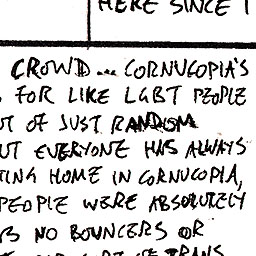 HERE SINCE I
CROWD... CORNUCOPIA'S
FOR LIKE LGBT PEOPLE
OF JUST RANDOM
EVERYONE HAS ALWAYS
HOME IN CORNUCOPIA,
PEOPLE WERE ABSOLUTELY
NO BOUNCERS OR
TRANS